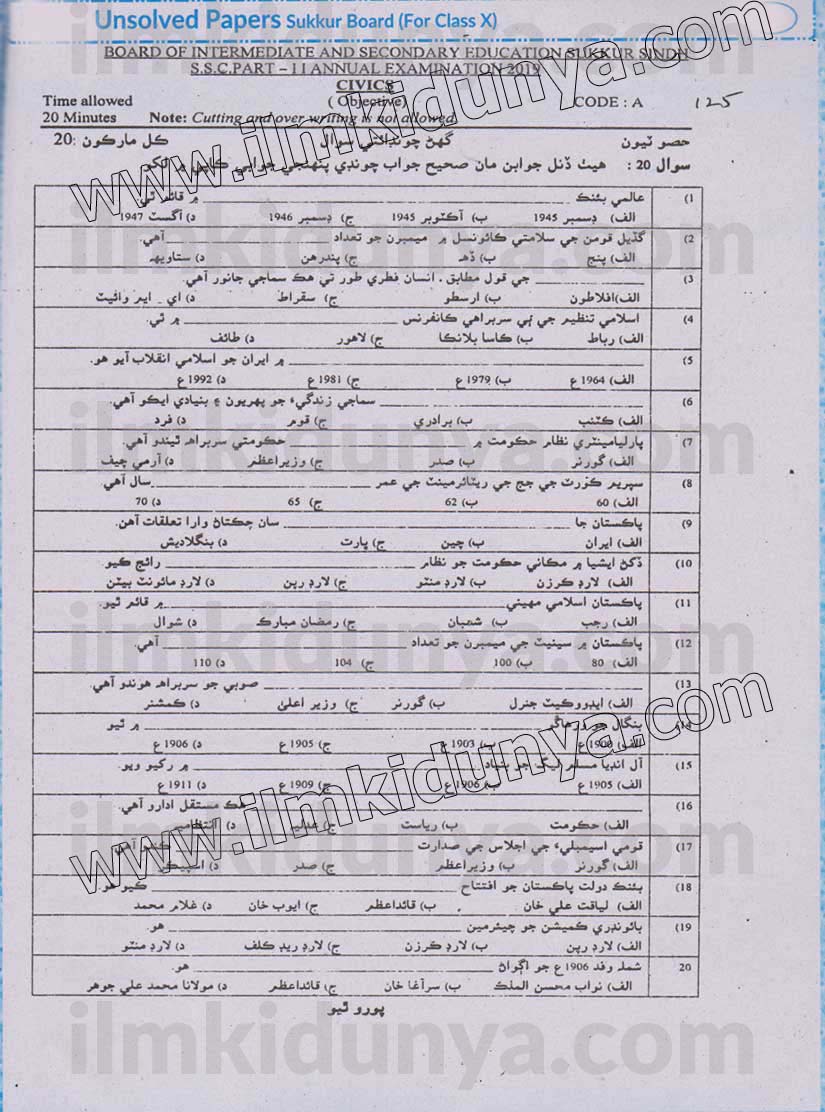 Unsolved Papers Sukkur Board (For Class X)
BOARD OF INTERMEDIATE AND SECONDARY EDUCATION SUKKUR SINDH
S.S.C.PART – I I ANNUAL EXAMINATION 2019
CIVICS
Time allowed ( Objective) CODE : A 125
20 Minutes Note: Cutting and over writing is not allowed
حصو ٽيون گهڻ چونڊائتي سوال ڪل مارڪون :20
سوال 20 : هيٺ ڏنل جوابن مان صحيح جواب چونڊي پنهنجي جوابي ڪاپي ۾ لکو
(1 عالمي بئنڪ ______ ۾ قائم ٿي.
الف) ڊسمبر 1945 ب) آڪٽوبر 1945 ج) ڊسمبر 1946 د) آگسٽ 1947
(2 گڏيل قومن جي سلامتي ڪائونسل ۾ ميمبرن جو تعداد ______ آهي.
الف) پنج ب) ڏهه ج) پندرهن د) ستاويهه
(3 ______ جي قول مطابق ـ انسان فطري طور تي هڪ سماجي جانور آهي.
الف)افلاطون ب) ارسطو ج) سقراط د) اي ـ ايم وائيٽ
(4 اسلامي تنظيم جي ٻي سربراهي ڪانفرنس ______ ۾ ٿي.
الف) رباط ب) ڪاسا بلانڪا ج) لاهور د) طائف
(5 ______ ۾ ايران جو اسلامي انقلاب آيو هو.
الف) 1964 ع ب) 1979 ع ج) 1981 ع د) 1992 ع
(6 ______ سماجي زندگيءَ جو پهريون ۽ بنيادي ايڪو آهي.
الف) ڪٽنب ب) برادري ج) قوم د) فرد
(7 پارليامينٽري نظام حڪومت ۾ ______ حڪومتي سربراهه ٿيندو آهي.
الف) گورنر ب) صدر ج) وزيراعظم د) آرمي چيف
(8 سپريم ڪورٽ جي جج جي ريٽائرمينٽ جي عمر ______ سال آهي.
الف) 60 ب) 62 ج) 65 د) 70
(9 پاڪستان جا ______ سان ڇڪتاڻ وارا تعلقات آهن.
الف) ايران ب) چين ج) ڀارت د) بنگلاديش
(10 ڏکڻ ايشيا ۾ مڪاني حڪومت جو نظام ______ رائج ڪيو.
الف) لارڊ ڪرزن ب) لارڊ منٽو ج) لارڊ رپن د) لارڊ مائونٽ بيٽن
(11 پاڪستان اسلامي مهيني ______ ۾ قائم ٿيو.
الف) رجب ب) شعبان ج) رمضان مبارڪ د) شوال
(12 پاڪستان ۾ سينيٽ جي ميمبرن جو تعداد ______ آهي.
الف) 80 ب) 100 ج) 104 د) 110
(13 ______ صوبي جو سربراهه هوندو آهي.
الف) ايڊووڪيٽ جنرل ب) گورنر ج) وزير اعليٰ د) ڪمشنر
(14 بنگال جو ورهاڱو ______ ۾ ٿيو
الف) 1900 ع ب) 1903 ع ج) 1905 ع د) 1906 ع
(15 آل انڊيا مسلم ليگ جو بنياد ______ ۾ رکيو ويو.
الف) 1905 ع ب) 1906 ع ج) 1909 ع د) 1911 ع
(16 ______ هڪ مستقل ادارو آهي.
الف) حڪومت ب) رياست ج) عدليه د) انتظاميه
(17 قومي اسيمبليءَ جي اجلاس جي صدارت ______ ڪندو آهي
الف) گورنر ب) وزيراعظم ج) صدر د) اسپيڪر
(18 بئنڪ دولت پاڪستان جو افتتاح ______ ڪيو هو.
الف) لياقت علي خان ب) قائداعظم ج) ايوب خان د) غلام محمد
(19 بائونڊري ڪميشن جو چيئرمين ______ هو.
الف) لارڊ رپن ب) لارڊ ڪرزن ج) لارڊ ريڊ ڪلف د) لارڊ منٽو
20 شمله وفد 1906 ع جو اڳواڻ ______ هو.
الف) نواب محسن الملڪ ب) سرآغا خان ج) قائداعظم د) مولانا محمد علي جوهر
پورو ٿيو
www.ilmkidunya.com
www.ilmkidunya.com
ilmkidunya.com
ilmkidunya.com
ilmkidunya.com
ilmkidunya.com
ilmkidunya.com